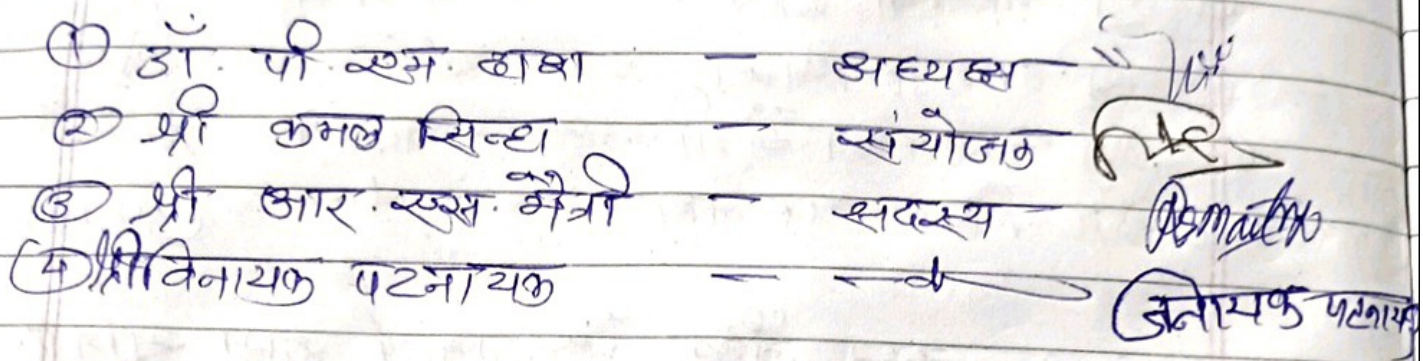 ① डॉ. पी. एम. बाबा — अध्यक्ष
② श्री कमल सिन्हा — संयोजक
③ श्री आर. एस. मैत्री — सदस्य Rsmaitri
④ श्री विनायक पटनायक — —"— विनायक पटनायक